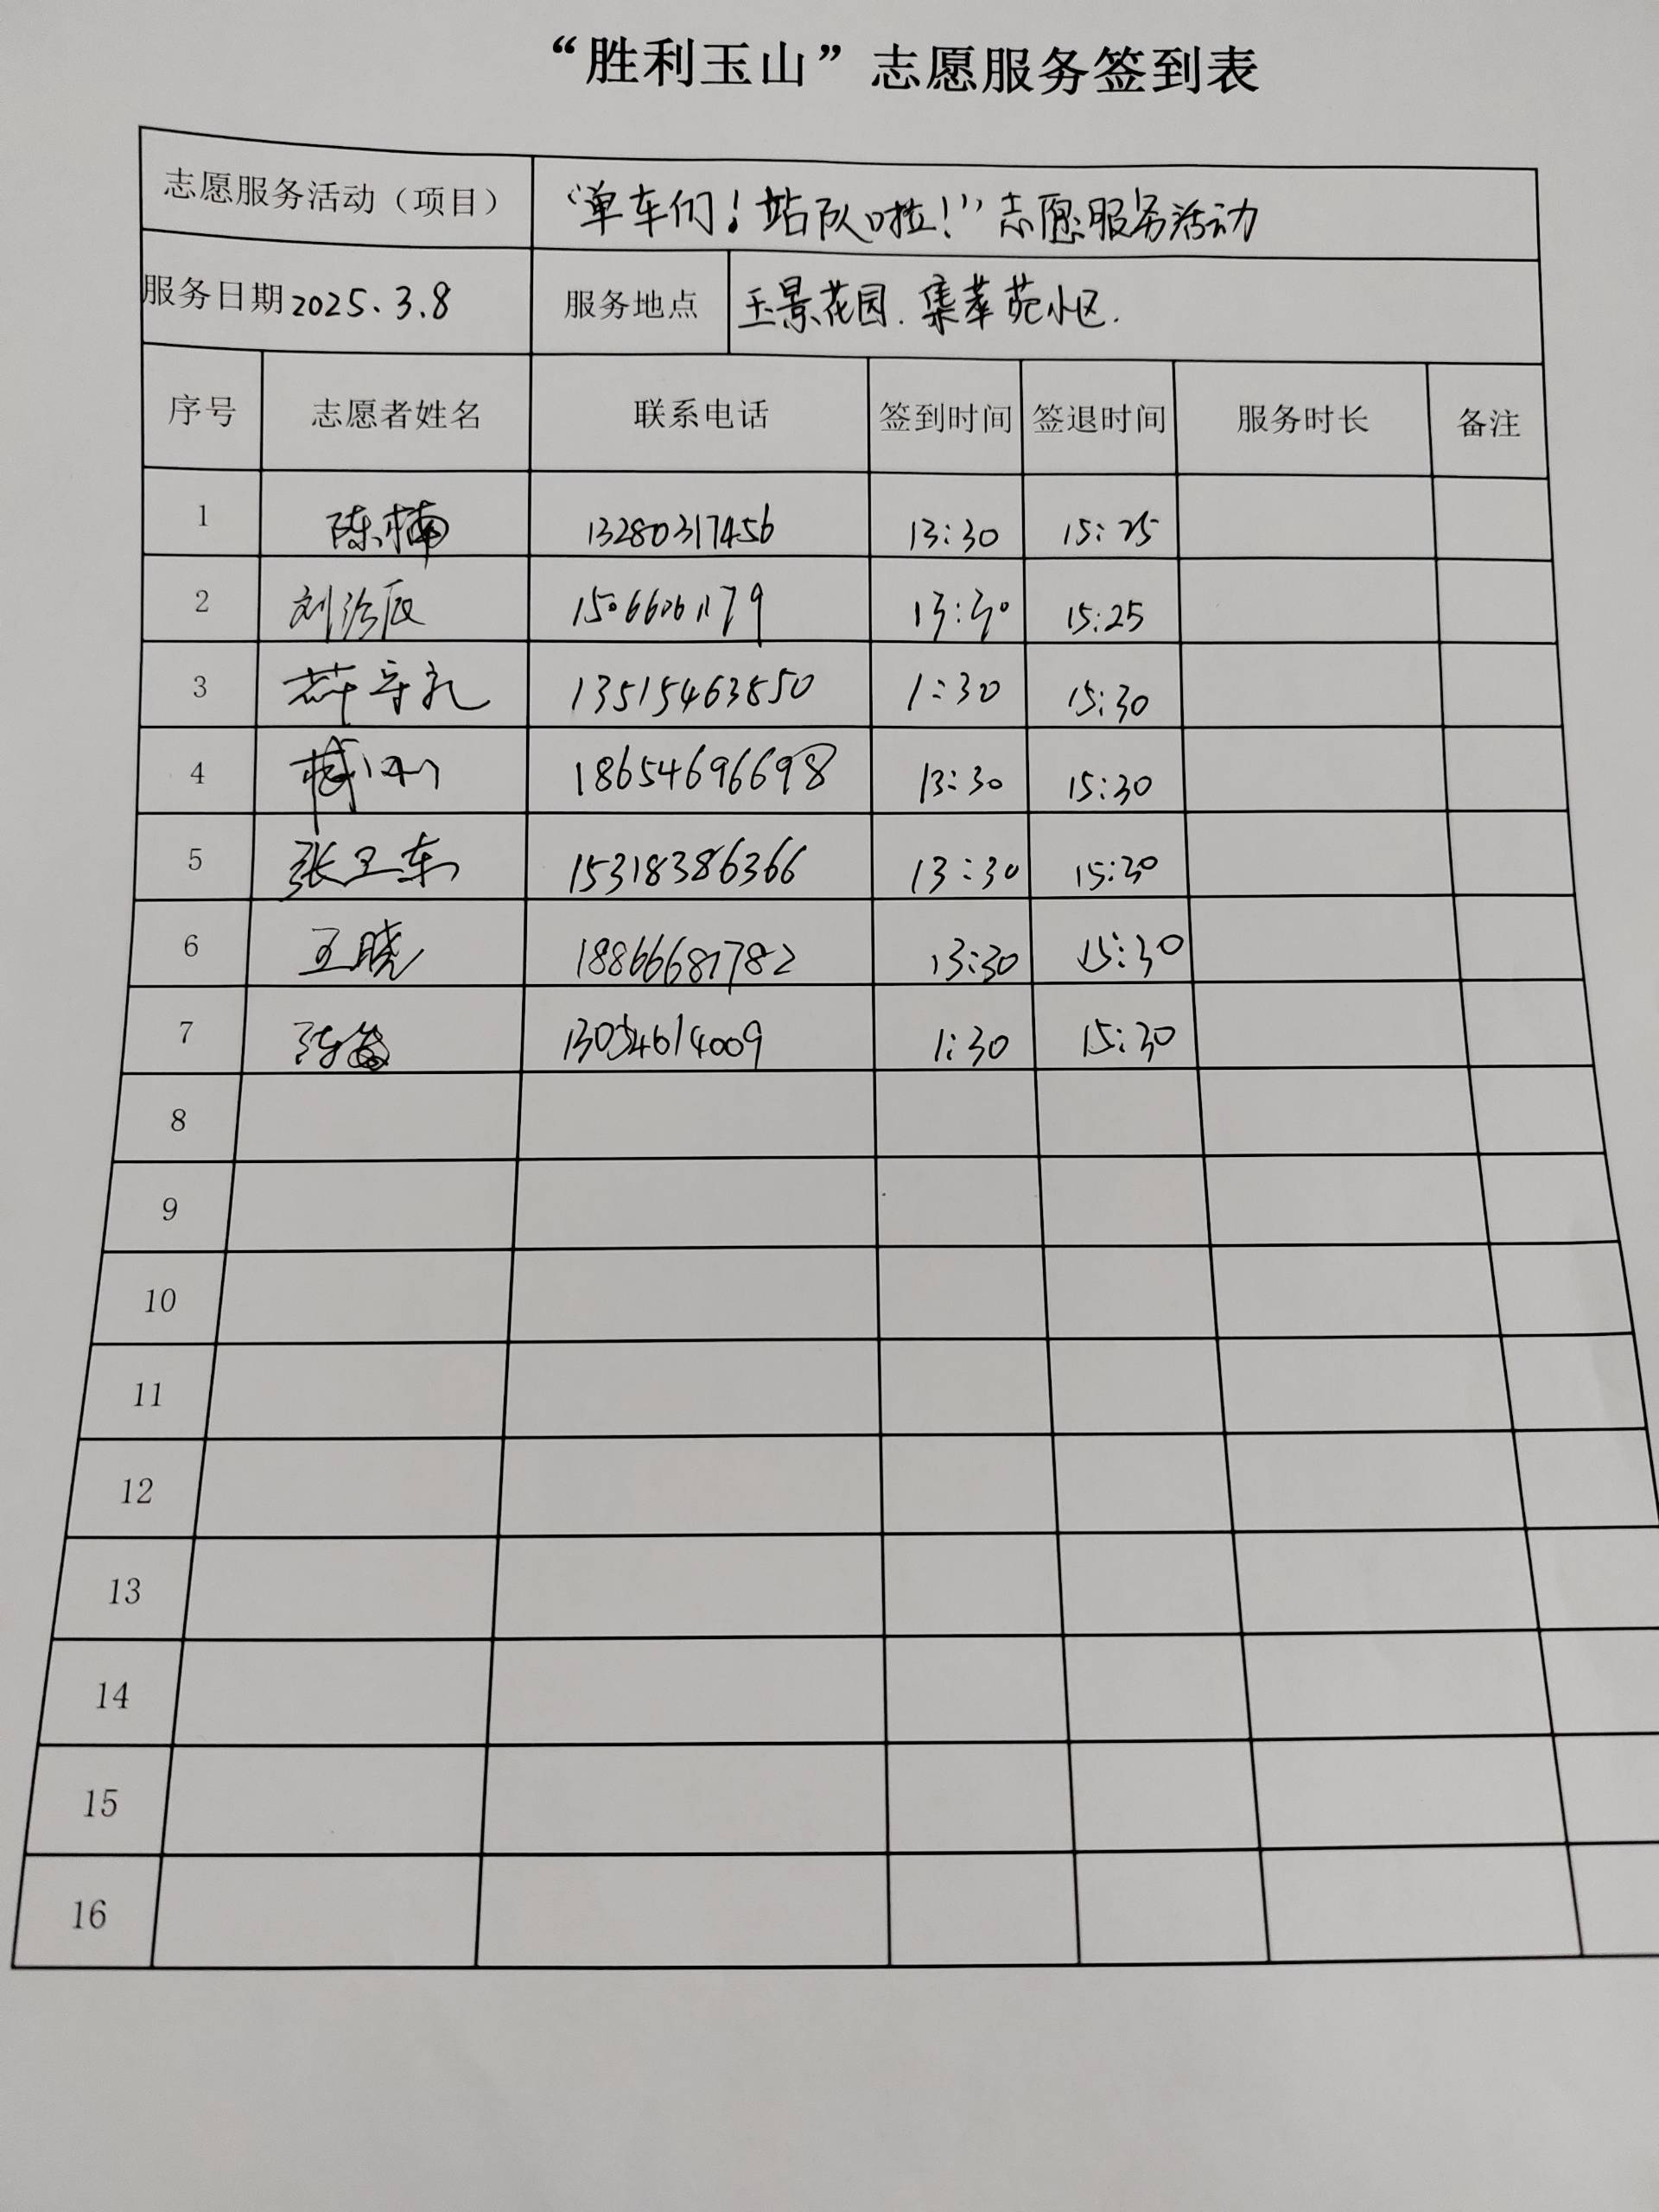 “胜利玉山”志愿服务签到表
志愿服务活动（项目） “单车们！站队啦！”志愿服务活动
服务日期 2025.3.8 服务地点 玉景花园.集萃苑小区.
序号 志愿者姓名 联系电话 签到时间 签退时间 服务时长 备注
1 陈楠 13280317456 13:30 15:25
2 刘治辰 15066061179 13:30 15:25
3 薛守礼 13515463850 1:30 15:30
4 18654696698 13:30 15:30
5 张卫东 15318386366 13:30 15:30
6 王晓 18866681782 13:30 15:30
7 13054614009 1:30 15:30
8
9
10
11
12
13
14
15
16